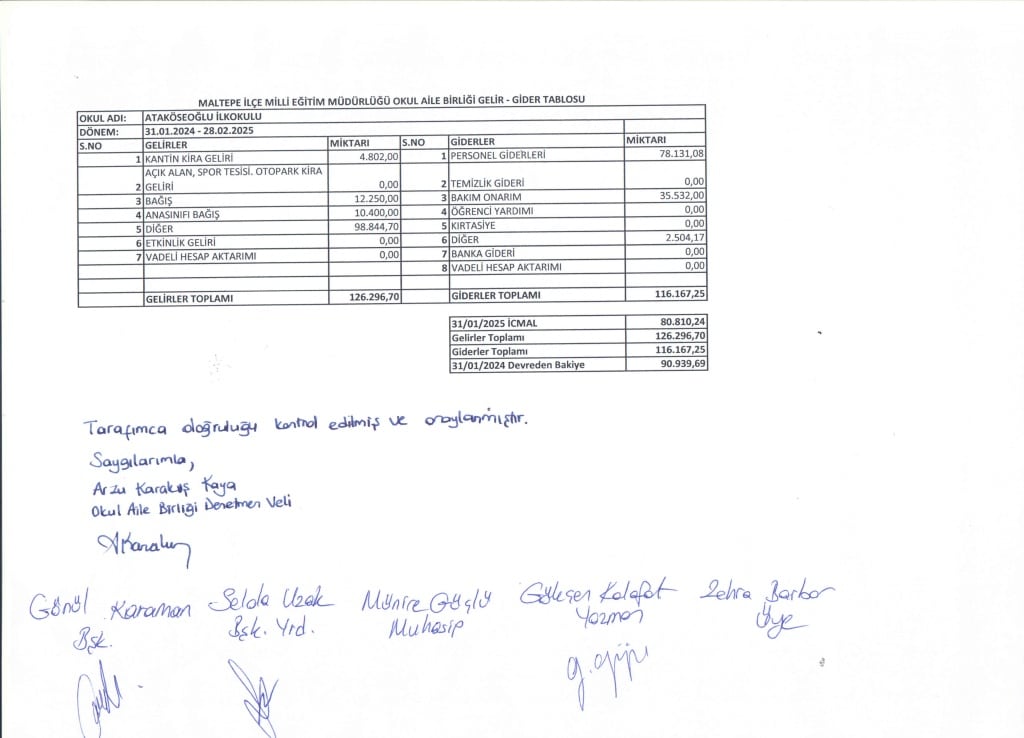 MALTEPE İLÇE MİLLİ EĞİTİM MÜDÜRLÜĞÜ OKUL AİLE BİRLİĞİ GELİR - GİDER TABLOSU
OKUL ADI: ATAKÖSEOĞLU İLKOKULU
DÖNEM: 31.01.2024 - 28.02.2025
S.NO GELİRLER MİKTARI S.NO GİDERLER MİKTARI
1 KANTİN KİRA GELİRİ 4.802,00 1 PERSONEL GİDERLERİ 78.131,08
AÇIK ALAN, SPOR TESİSİ. OTOPARK KİRA
2 GELİRİ 0,00 2 TEMİZLİK GİDERİ 0,00
3 BAĞIŞ 12.250,00 3 BAKIM ONARIM 35.532,00
4 ANASINIFI BAĞIŞ 10.400,00 4 ÖĞRENCİ YARDIMI 0,00
5 DİĞER 98.844,70 5 KIRTASİYE 0,00
6 ETKİNLİK GELİRİ 0,00 6 DİĞER 2.504,17
7 VADELİ HESAP AKTARIMI 0,00 7 BANKA GİDERİ 0,00
8 VADELİ HESAP AKTARIMI 0,00
GELİRLER TOPLAMI 126.296,70 GİDERLER TOPLAMI 116.167,25
31/01/2025 İCMAL 80.810,24
Gelirler Toplamı 126.296,70
Giderler Toplamı 116.167,25
31/01/2024 Devreden Bakiye 90.939,69
Tarafımca doğruluğu kontrol edilmiş ve onaylanmıştır.
Saygılarımla,
Arzu Karakuş Kaya
Okul Aile Birliği Denetmen Veli
Gönül Karaman Selda Uzak Münire Güçlü Gökçen Kalafat Zehra Barbor
Bşk. Bşk. Yrd. Muhasip Yazman Üye